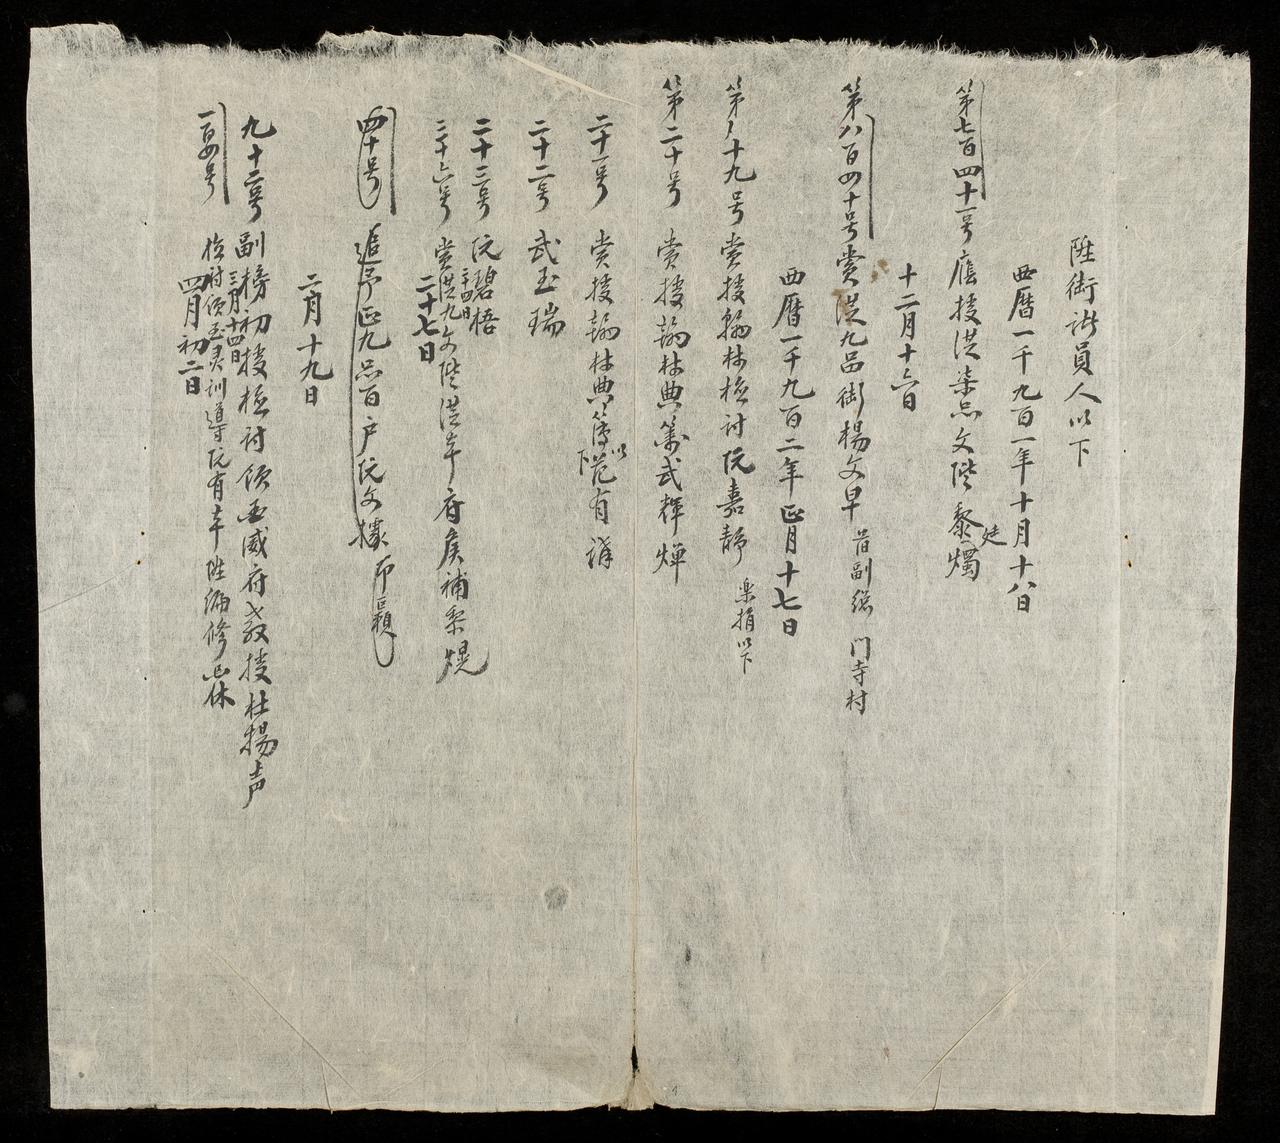 陞銜諸員人以下
西曆一千九百一年十月十八日
第七百四十一号 廕授從柒品文階黎廷燭
十二月十六日
第八百四十号 賞從九品銜楊文早 昔副總 门寺村
西曆一千九百二年正月十七日
第十九号 賞授翰林檢討阮嘉靜 樂捐以下
第二十号 賞授翰林典簿武輝燀
二十一号 賞授翰林典簿范有講 以下
二十二号 武玉瑞
二十三号 阮碧梧
二十四日
三十六号 賞從九文階從 府侯補黎熀
二十七日
四十号 追予正九品百户阮文據 即 顯
二月十九日
九十二号 副榜初授檢討領 威府教授杜揚声
三月十四日
一百四号 檢討領 訓導阮有 陞編修 休
四月初二日